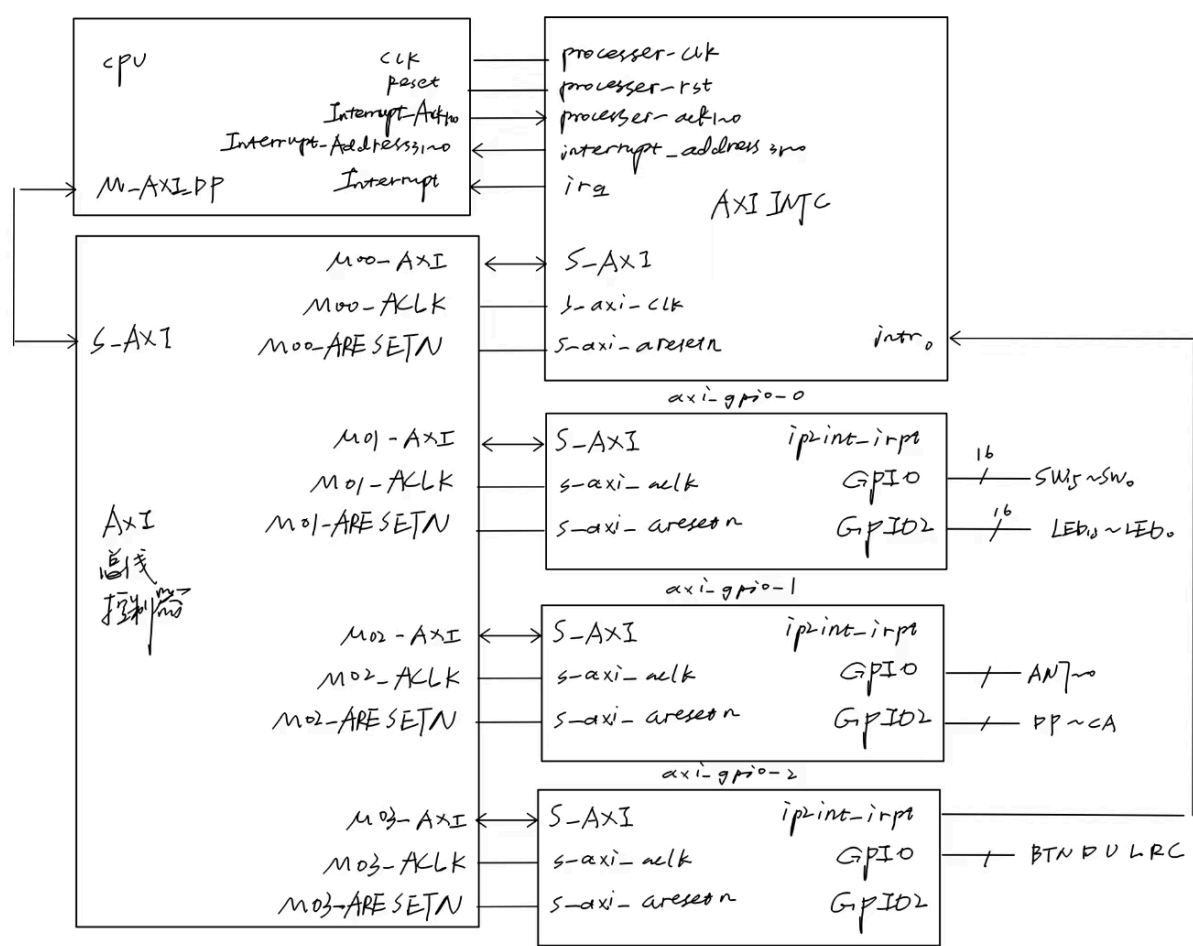 CPU
CLK
Reset
Interrupt_Ack1~0
Interrupt_Address31~0
Interrupt
M_AXI_DP
processer-clk
processer-rst
processer-ack1~0
interrupt_address 31~0
irq
AXI INTC
S_AXI
s_axi_clk
s_axi_aresetn
intr0
S_AXI
M00-AXI
M00-ACLK
M00-ARESETN
M01-AXI
M01-ACLK
M01-ARESETN
AXI
总线
控制器
M02-AXI
M02-ACLK
M02-ARESETN
M03-AXI
M03-ACLK
M03-ARESETN
axi-gpio-0
S_AXI
s-axi-aclk
s-axi-aresetn
ip2int_irpt
GPIO
GPIO2
16
SW15~SW0
16
LED15~LED0
axi-gpio-1
S_AXI
s-axi-aclk
s-axi-aresetn
ip2int_irpt
GPIO
GPIO2
AN7~0
DP~CA
axi-gpio-2
S_AXI
s-axi-aclk
s-axi-aresetn
ip2int_irpt
GPIO
GPIO2
BTN D U L R C